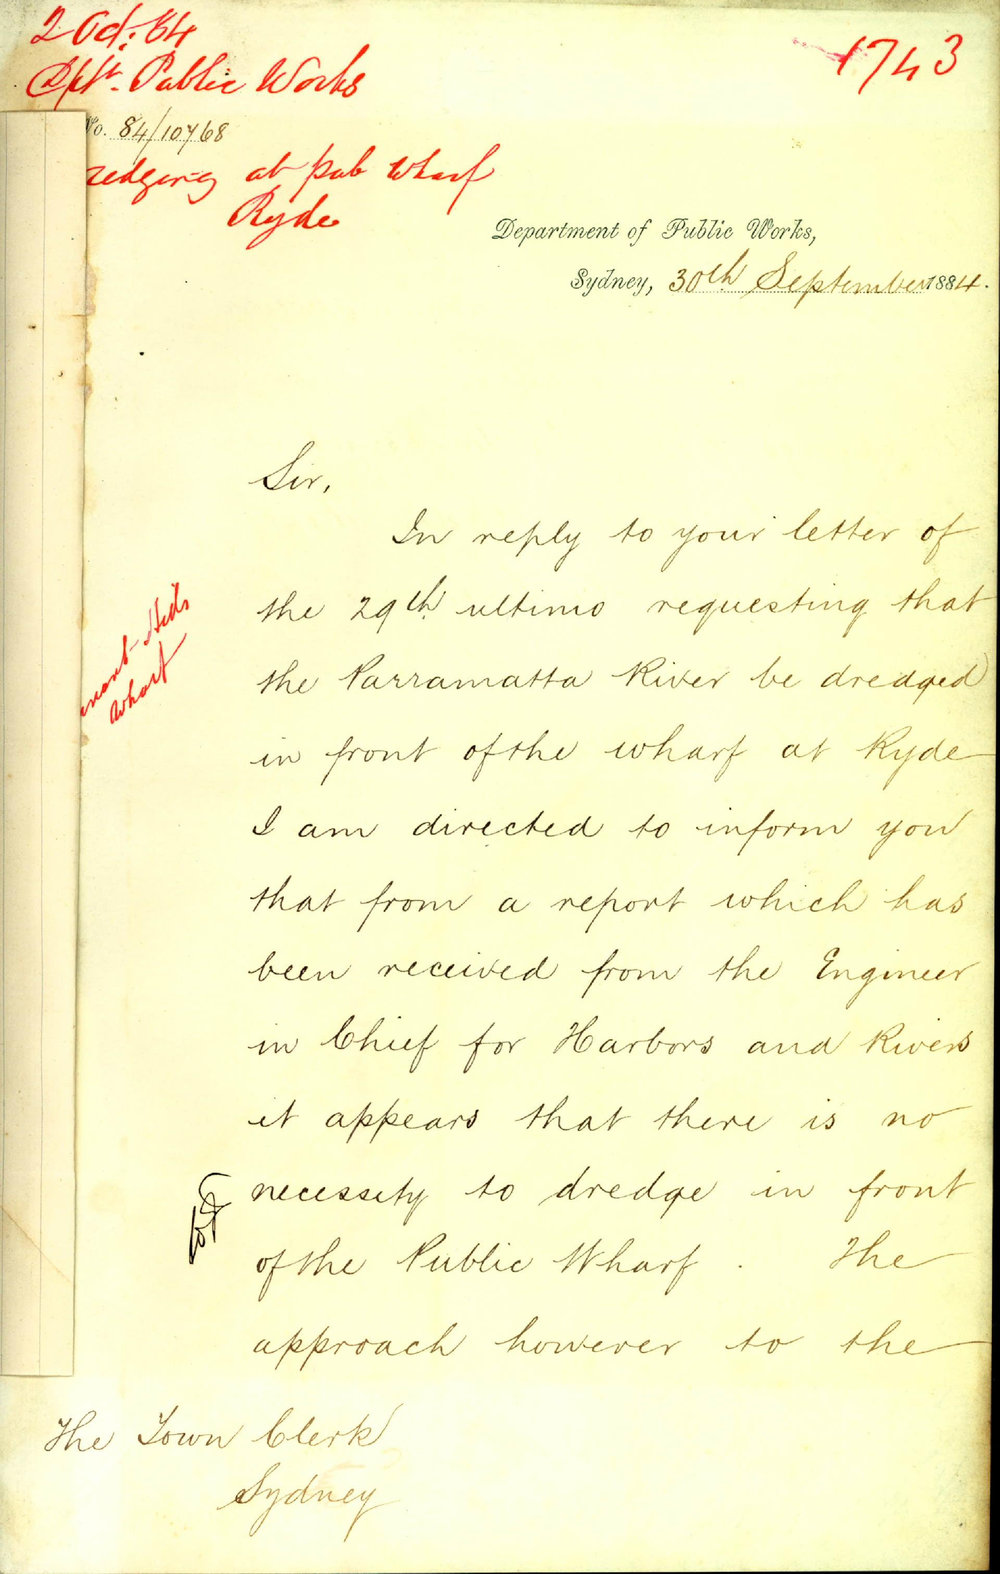 2 Oct. 84
Dept. Public Works
1743
No. 84/10768
redging at pub Wharf
Ryde
Department of Public Works,
Sydney, 30th September 1884.
Sir,
In reply to your letter of
the 29th ultimo requesting that
the Parramatta River be dredged
in front of the wharf at Ryde
I am directed to inform you
that from a report which has
been received from the Engineer
in Chief for Harbors and Rivers
it appears that there is no
necessity to dredge in front
of the Public Wharf. The
approach however to the
nant Hills
Wharf
The Town Clerk
Sydney